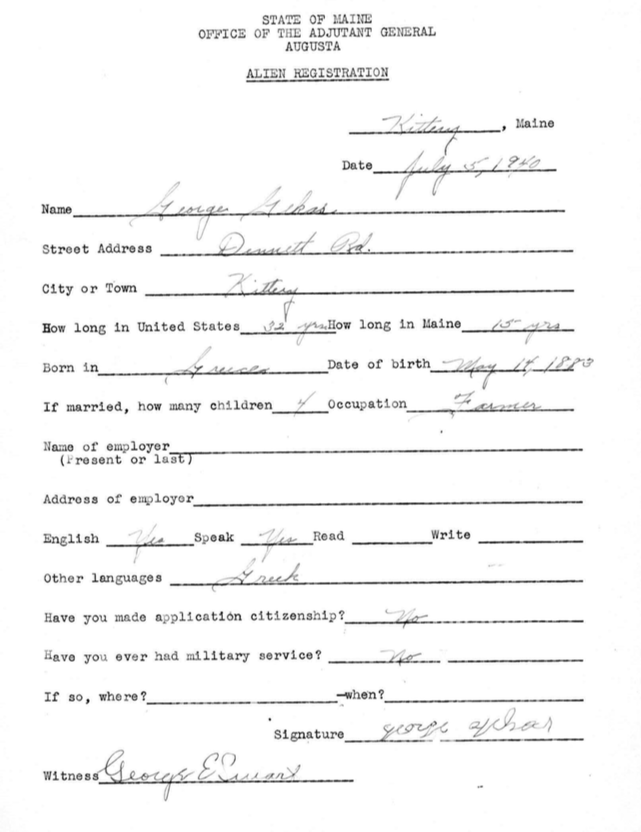 STATE OF MAINE
OFFICE OF THE ADJUTANT GENERAL
AUGUSTA
ALIEN REGISTRATION
Kittery, Maine
Date July 5, 1940
Name George Gekas
Street Address Dennett Rd.
City or Town Kittery
How long in United States 32 yrs How long in Maine 15 yrs
Born in Greece Date of birth May 14, 1883
If married, how many children 4 Occupation Farmer
Name of employer
(Present or last)
Address of employer
English Yes Speak Yes Read Write
Other languages Greek
Have you made application citizenship? No
Have you ever had military service? No
If so, where? when?
Signature george
Witness George E.